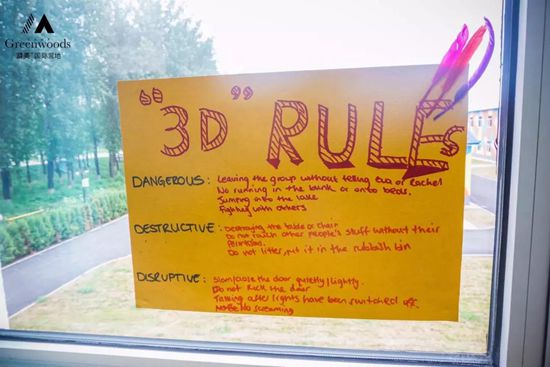 Greenwoods
国际营地
"3D" RULES
DANGEROUS: Leaving the group without telling Eva or Rachel
No running in the bunk or onto beds.
Jumping into the lake
Fighting with others
DESTRUCTIVE: Destroying the table or chair
Do not touch other people's stuff without their
Do not litter, put it in the rubbish bin
DISRUPTIVE: Slam/close the door quietly/lightly.
Do not kick the door
Talking after lights have been switched off
No screaming